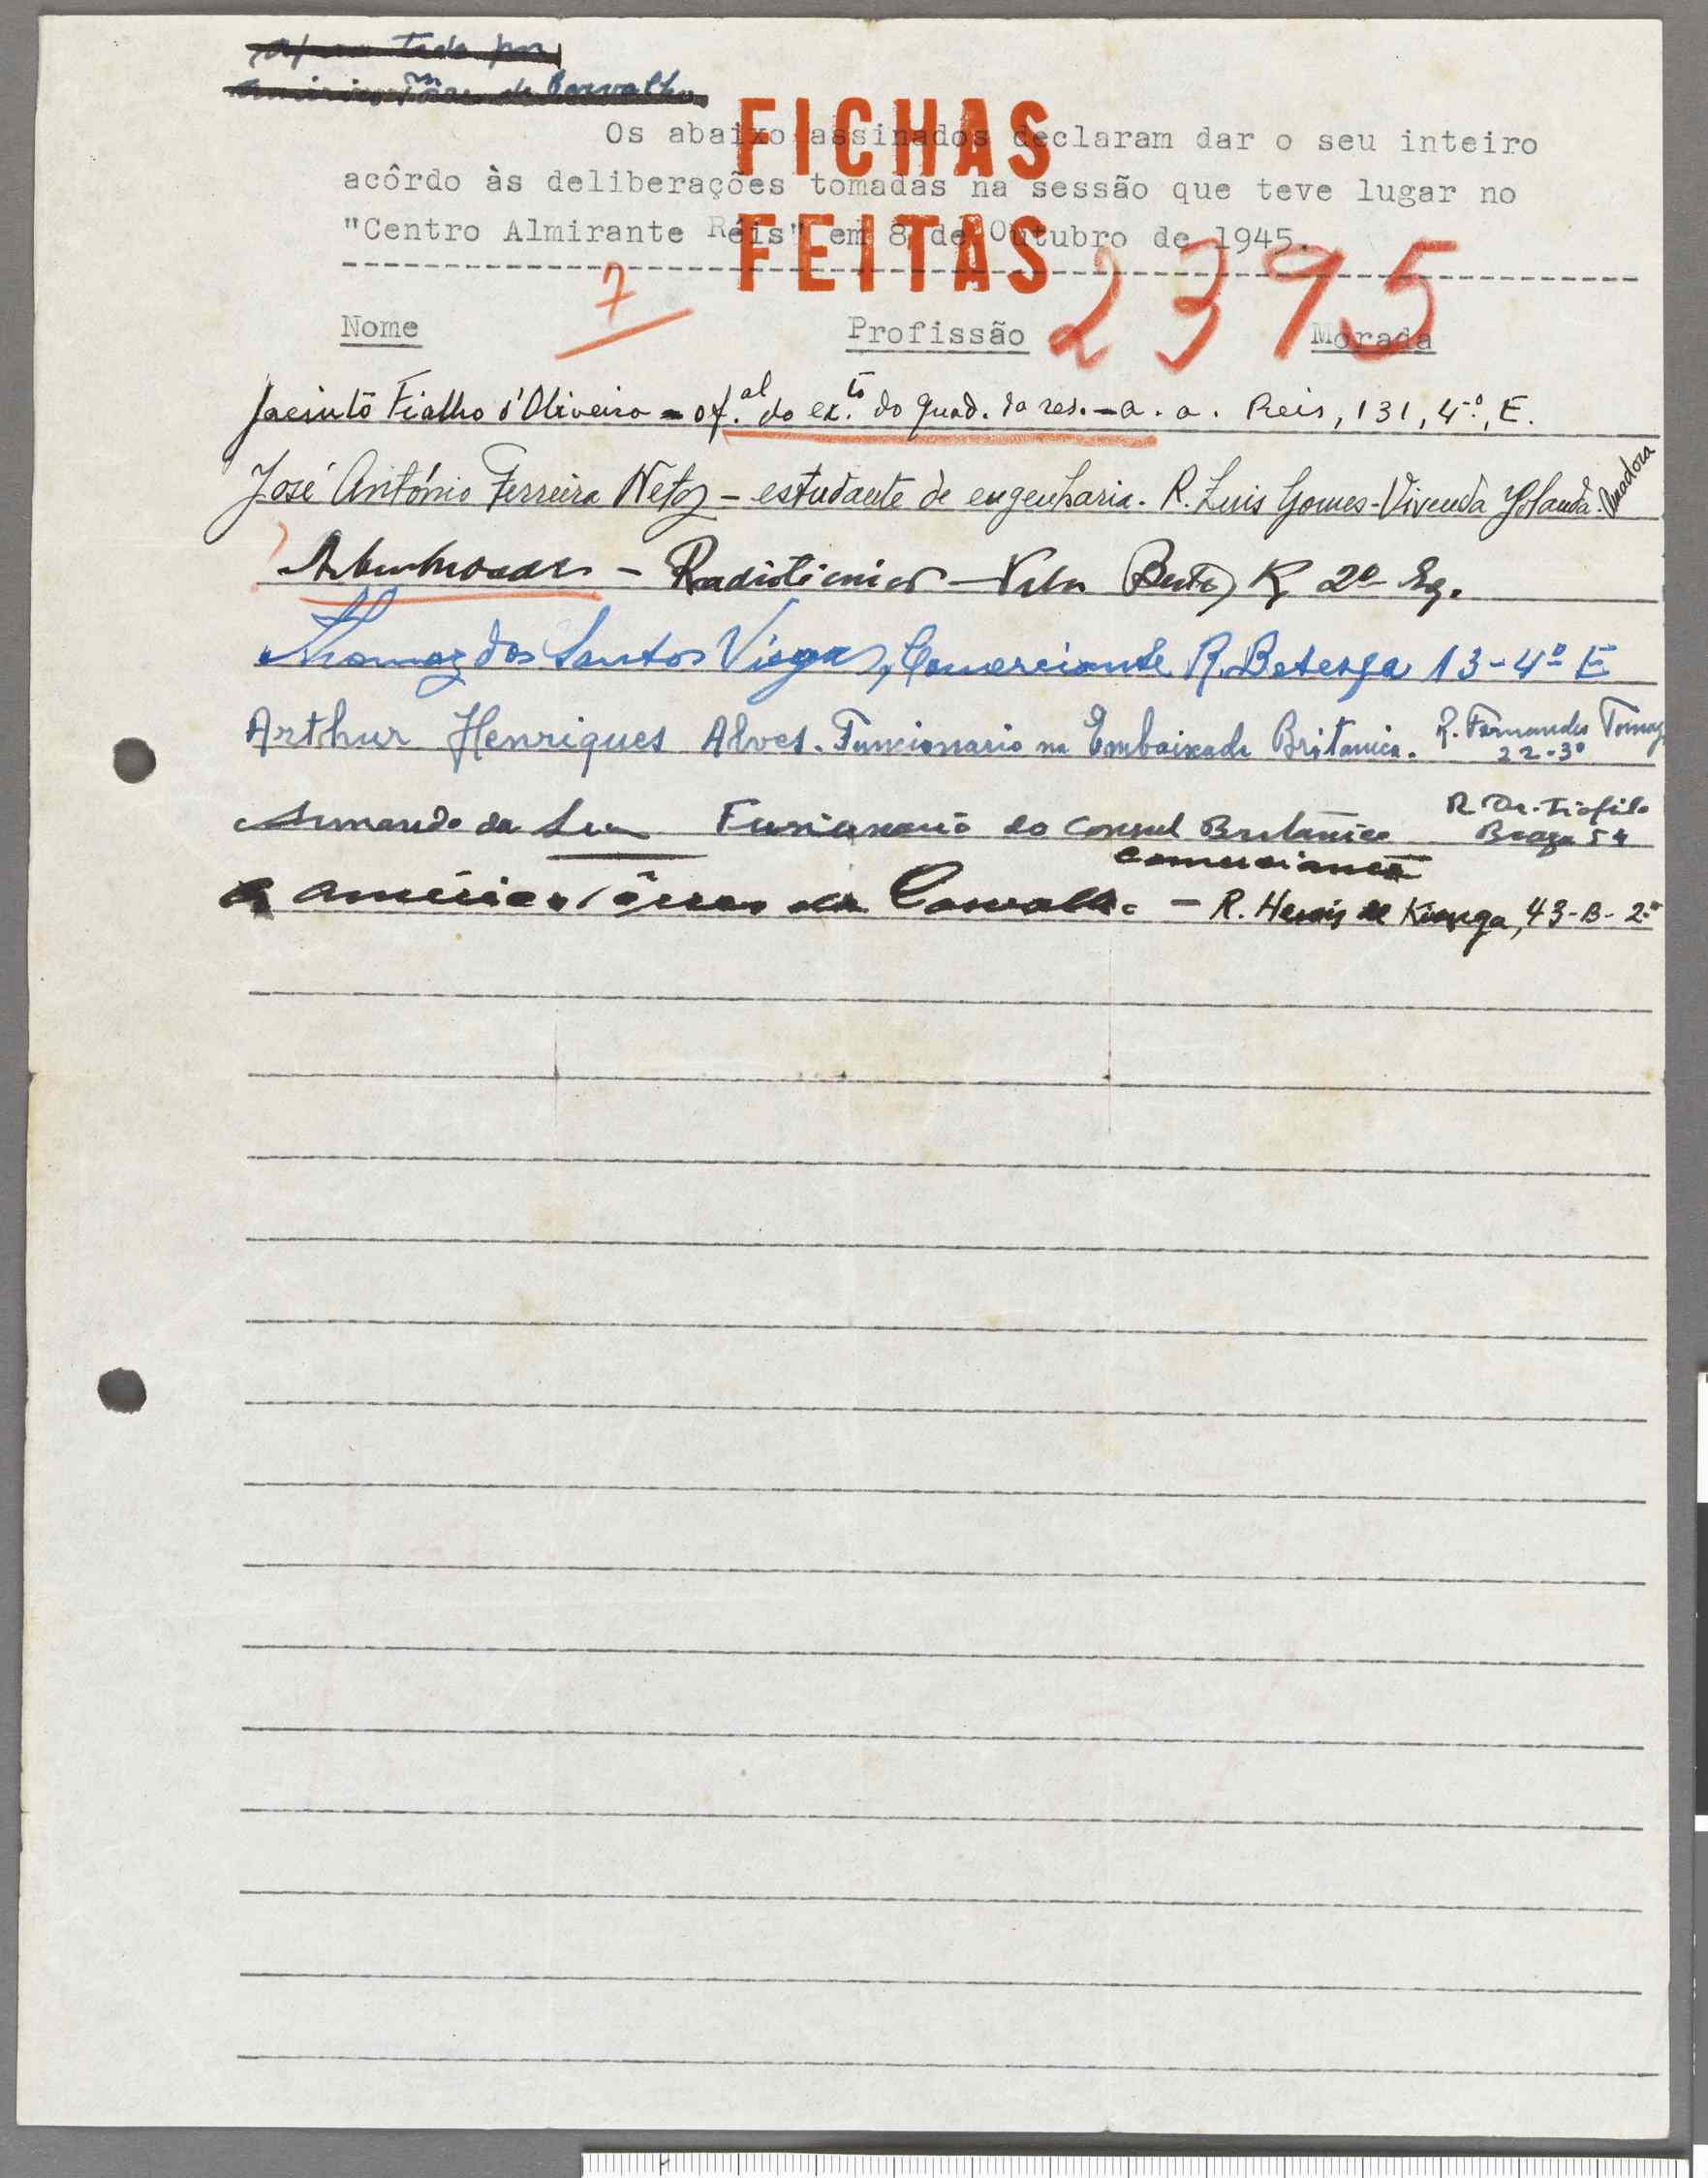 de Carvalho
FICHAS
Os abaixo assinados declaram dar o seu inteiro
acôrdo às deliberações tomadas na sessão que teve lugar no
FEITAS
"Centro Almirante Réis" em 8 de Outubro de 1945.
7
2395
Nome Profissão Morada
Jacinto Fialho d'Oliveira - of.al do ex.to do quad. da res. - A. A. Reis, 131, 4.º, E.
José António Ferreira Neto - estudante de engenharia. R. Luis Gomes - Vivenda Yolanda. Amadora
- Radiotécnico - 2º Esq.
Thomaz dos Santos Viegas, Comerciante R. Betesga 13-4º E
Arthur Henriques Alves. Funcionario na Embaixada Britanica. R. Fernandes Tomaz
22-3º
Armando da Funcionario do Consul Britânico R. Dr. Teófilo
Braga 54
comerciante
Américo Tôrres de Carvalho - R. Herois de Kionga, 43-B-2º